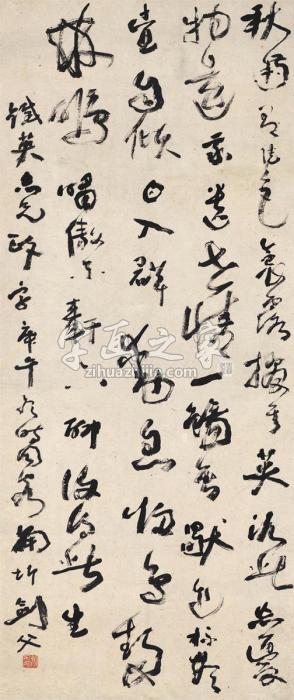 秋菊有佳色裛露掇其英汎此忘憂
物遠我遺世情一觴雖獨進杯盡
壺自傾日入群動息歸鳥趨
林鳴嘯傲東軒下聊復得此生
鐵英六兄政字庚午時同客劍父
字画之家
zihuazhijia.com